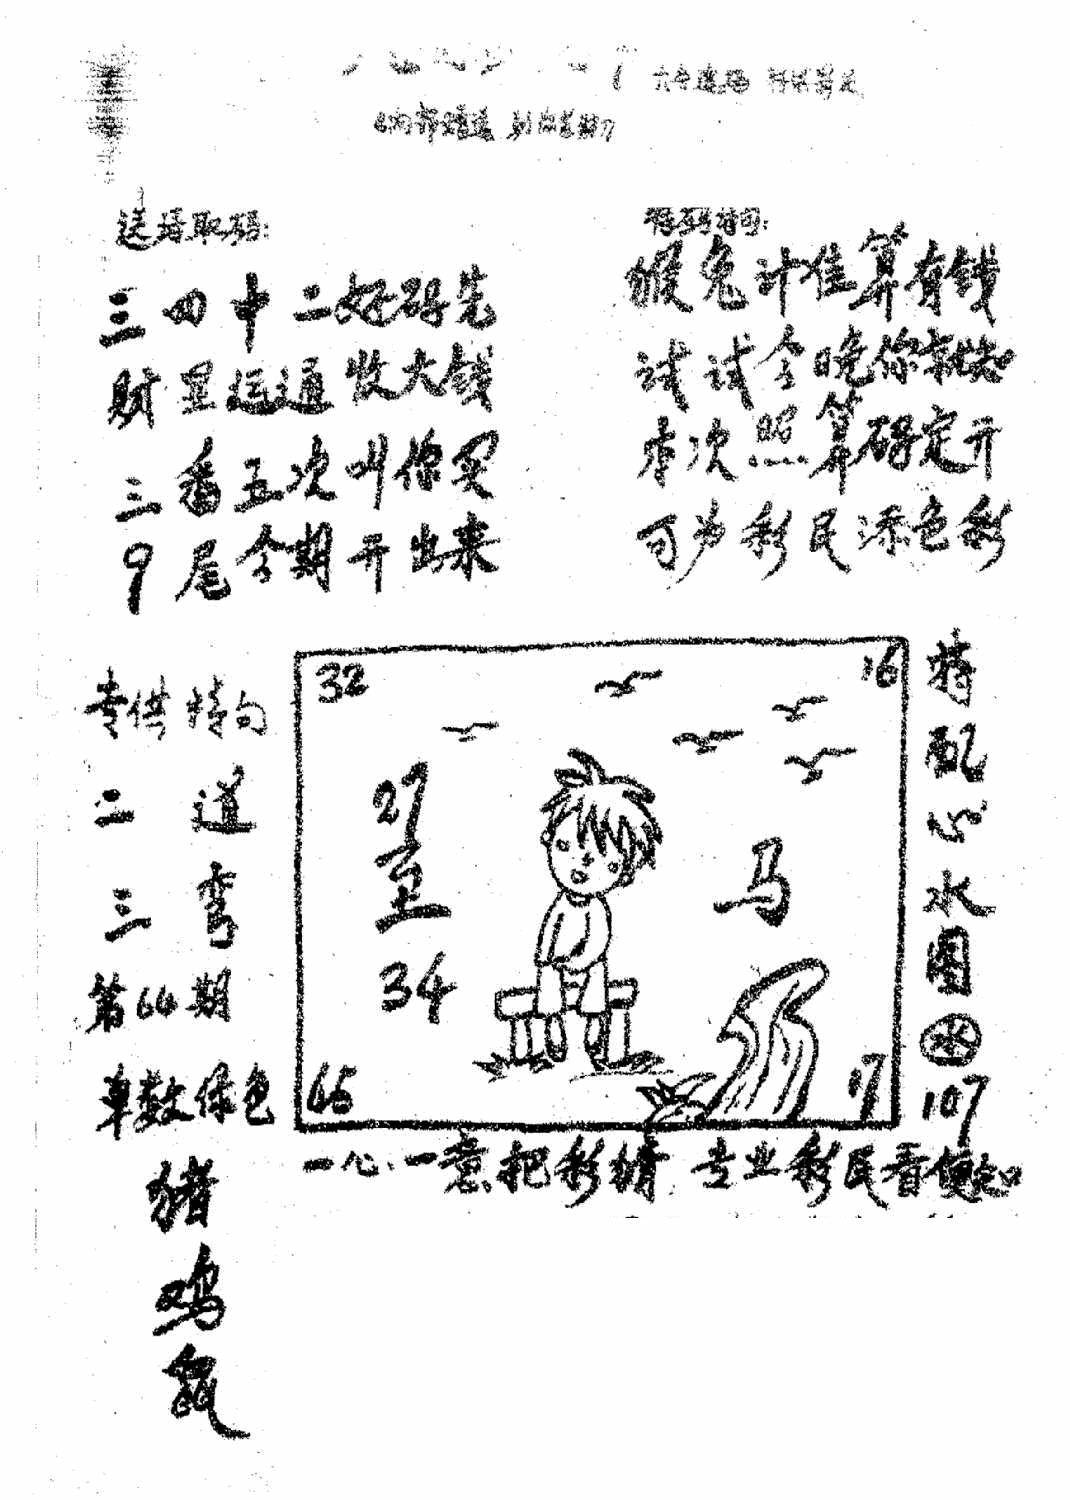 三四中二好码先
财星运通收大钱
三番五次叫你买
9尾今期开出来
猴兔计准算有钱
试试今晚你就知
本次照算码定开
可为彩民添色彩
专供特句
二道
三弯
第64期
单数绿色
猪
鸡
鼠
32
16
27
至
34
马
65
17
特配心水图
水
107
一心一意把彩猜 专业彩民看便知